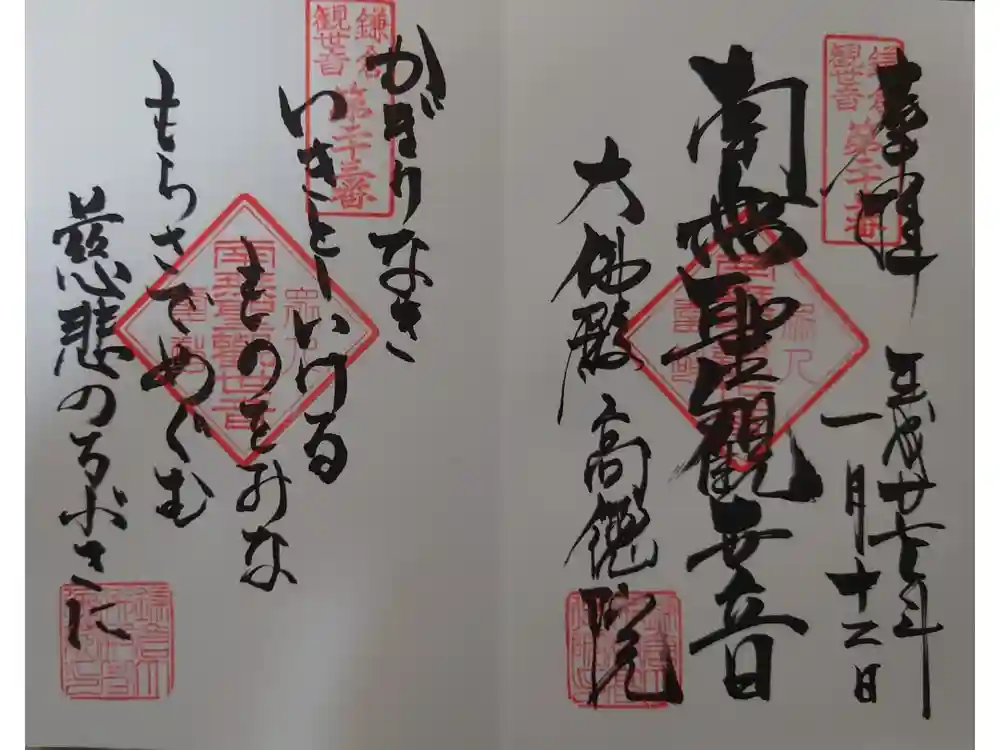 奉拝
平成廿七年
一月十二日
鎌倉
観世音
第二十三番
南無聖観世音
大佛殿 高徳院
かぎりなき
いきとしいける
ものをみな
もらさでめぐむ
慈悲の
鎌倉
観世音
第二十三番
南無聖観世音